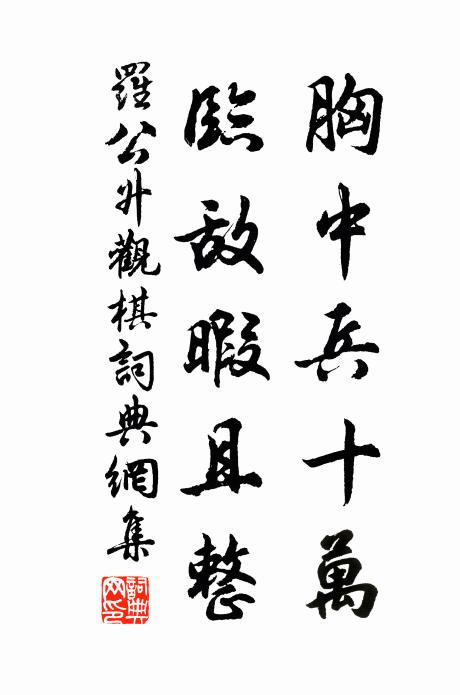 胸中兵十萬
臨敵暇且整
羅公升觀棋詞典網集
詞典網印